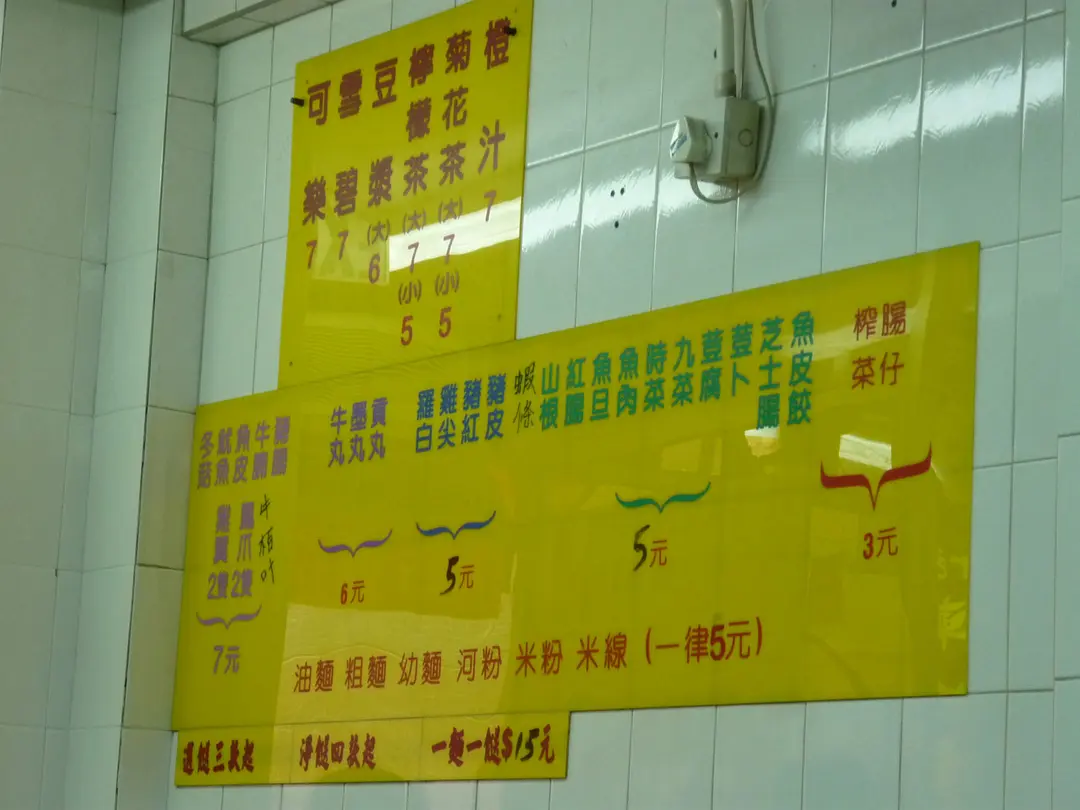 橙汁 7
菊花茶 (大) 7 (小) 5
檸檬茶 (大) 7 (小) 5
豆漿 (大) 6
雪碧 7
可樂 7
腸仔
榨菜
3元
魚皮餃
芝士腸
荳卜
荳腐
九菜
時菜
魚肉
魚旦
紅腸
山根
蝦條
5元
豬皮
豬紅
雞尖
羅白
5元
貢丸
墨丸
牛丸
6元
牛腩
魚皮
魷魚
冬菇
牛柏叶
鳳爪2隻
雞翼2隻
7元
油麵 粗麵 幼麵 河粉 米粉 米線 (一律5元)
選餸三款起 淨餸四款起 一麵一餸$15元